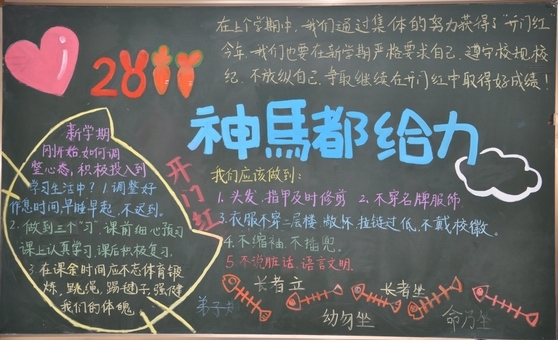 在上个学期中,我们通过集体的努力获得了"开门红
今年,我们也要在新学期严格要求自己,遵守校规校
纪,不放纵自己,争取继续在开门红中取得好成绩!
2011
神馬都给力
新学期
刚开始,如何调
整心态,积极投入到
学习生活中?1.调整好
作息时间,早睡早起,不迟到。
2.做到三个"习",课前细心预习
课上认真学习,课后积极复习。
3.在课余时间应不忘体育锻
炼,跳绳,踢毽子,强健
我们的体魄。
开门红
我们应该做到:
1.头发、指甲及时修剪 2.不穿名牌服饰
3.衣服不穿二层楼,敞怀,拉链过低,不戴校徽。
4.不缩袖,不插兜。
5.不说脏话,语言文明.
弟子
长者立
幼勿坐
长者坐
命乃坐